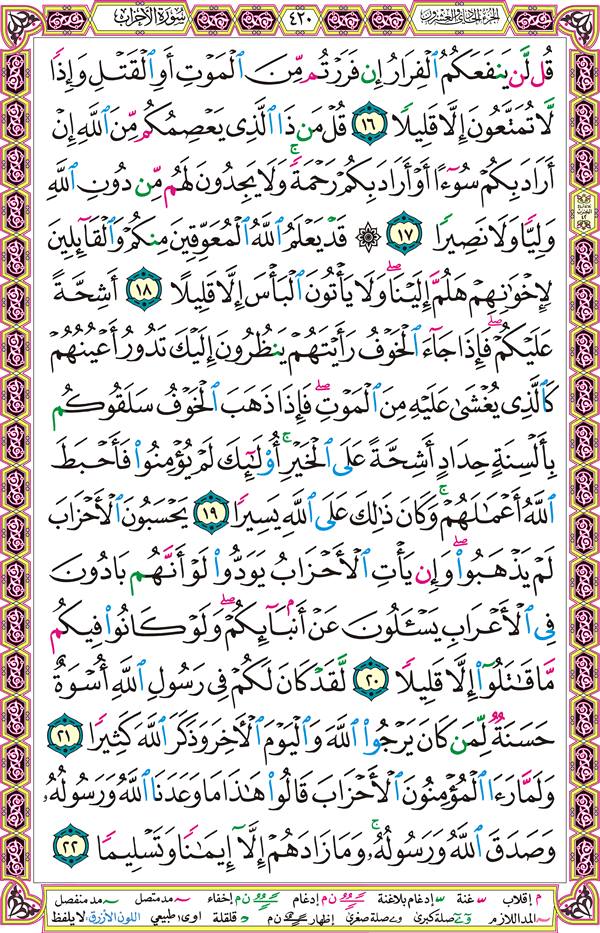 سورة الأحزاب ٤٢٠ الجزء الحادي والعشرون
قُل لَّن يَنفَعَكُمُ ٱلْفِرَارُ إِن فَرَرْتُم مِّنَ ٱلْمَوْتِ أَوِ ٱلْقَتْلِ وَإِذًا
لَّا تُمَتَّعُونَ إِلَّا قَلِيلًا ١٦ قُلْ مَن ذَا ٱلَّذِى يَعْصِمُكُم مِّنَ ٱللَّهِ إِنْ
أَرَادَ بِكُمْ سُوٓءًا أَوْ أَرَادَ بِكُمْ رَحْمَةً ۚ وَلَا يَجِدُونَ لَهُم مِّن دُونِ ٱللَّهِ
وَلِيًّا وَلَا نَصِيرًا ١٧ ۞ قَدْ يَعْلَمُ ٱللَّهُ ٱلْمُعَوِّقِينَ مِنكُمْ وَٱلْقَآئِلِينَ
لِإِخْوَٰنِهِمْ هَلُمَّ إِلَيْنَا ۖ وَلَا يَأْتُونَ ٱلْبَأْسَ إِلَّا قَلِيلًا ١٨ أَشِحَّةً
عَلَيْكُمْ ۖ فَإِذَا جَآءَ ٱلْخَوْفُ رَأَيْتَهُمْ يَنظُرُونَ إِلَيْكَ تَدُورُ أَعْيُنُهُمْ
كَٱلَّذِى يُغْشَىٰ عَلَيْهِ مِنَ ٱلْمَوْتِ ۖ فَإِذَا ذَهَبَ ٱلْخَوْفُ سَلَقُوكُم
بِأَلْسِنَةٍ حِدَادٍ أَشِحَّةً عَلَى ٱلْخَيْرِ ۚ أُو۟لَٰٓئِكَ لَمْ يُؤْمِنُوا۟ فَأَحْبَطَ
ٱللَّهُ أَعْمَٰلَهُمْ ۚ وَكَانَ ذَٰلِكَ عَلَى ٱللَّهِ يَسِيرًا ١٩ يَحْسَبُونَ ٱلْأَحْزَابَ
لَمْ يَذْهَبُوا۟ ۖ وَإِن يَأْتِ ٱلْأَحْزَابُ يَوَدُّوا۟ لَوْ أَنَّهُم بَادُونَ
فِى ٱلْأَعْرَابِ يَسْـَٔلُونَ عَنْ أَنۢبَآئِكُمْ ۖ وَلَوْ كَانُوا۟ فِيكُم
مَّا قَٰتَلُوٓا۟ إِلَّا قَلِيلًا ٢٠ لَّقَدْ كَانَ لَكُمْ فِى رَسُولِ ٱللَّهِ أُسْوَةٌ
حَسَنَةٌ لِّمَن كَانَ يَرْجُوا۟ ٱللَّهَ وَٱلْيَوْمَ ٱلْـَٔاخِرَ وَذَكَرَ ٱللَّهَ كَثِيرًا ٢١
وَلَمَّا رَءَا ٱلْمُؤْمِنُونَ ٱلْأَحْزَابَ قَالُوا۟ هَٰذَا مَا وَعَدَنَا ٱللَّهُ وَرَسُولُهُۥ
وَصَدَقَ ٱللَّهُ وَرَسُولُهُۥ ۚ وَمَا زَادَهُمْ إِلَّآ إِيمَٰنًا وَتَسْلِيمًا ٢٢
م إقلاب غنة إدغام بلاغنة ن م إدغام ن م إخفاء مد متصل مد منفصل
المد اللازم صلة كبرى صلة صغرى إظهار ن م قلقلة اوى طبيعي اللون الأزرق: لا يلفظ